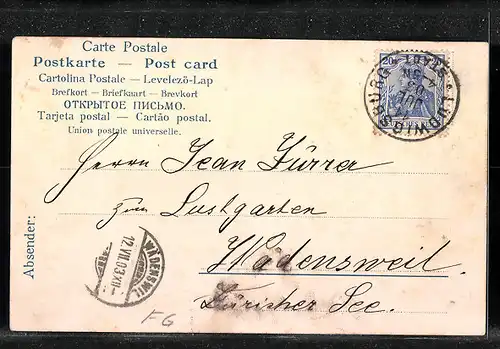 Carte Postale
Postkarte — Post card
Cartolina Postale — Levelező-Lap
Brefkort — Briefkaart — Brevkort
ОТКРЫТОЕ ПИСЬМО.
Tarjeta postal — Cartão postal.
Union postale universelle.
20
LUDWIGSBURG
Herrn Jean Fürrer
zum Lustgarten
Wädensweil.
Züricher See.
Absender:
WÄDENSWIL
12.VII.03.XII-
FG